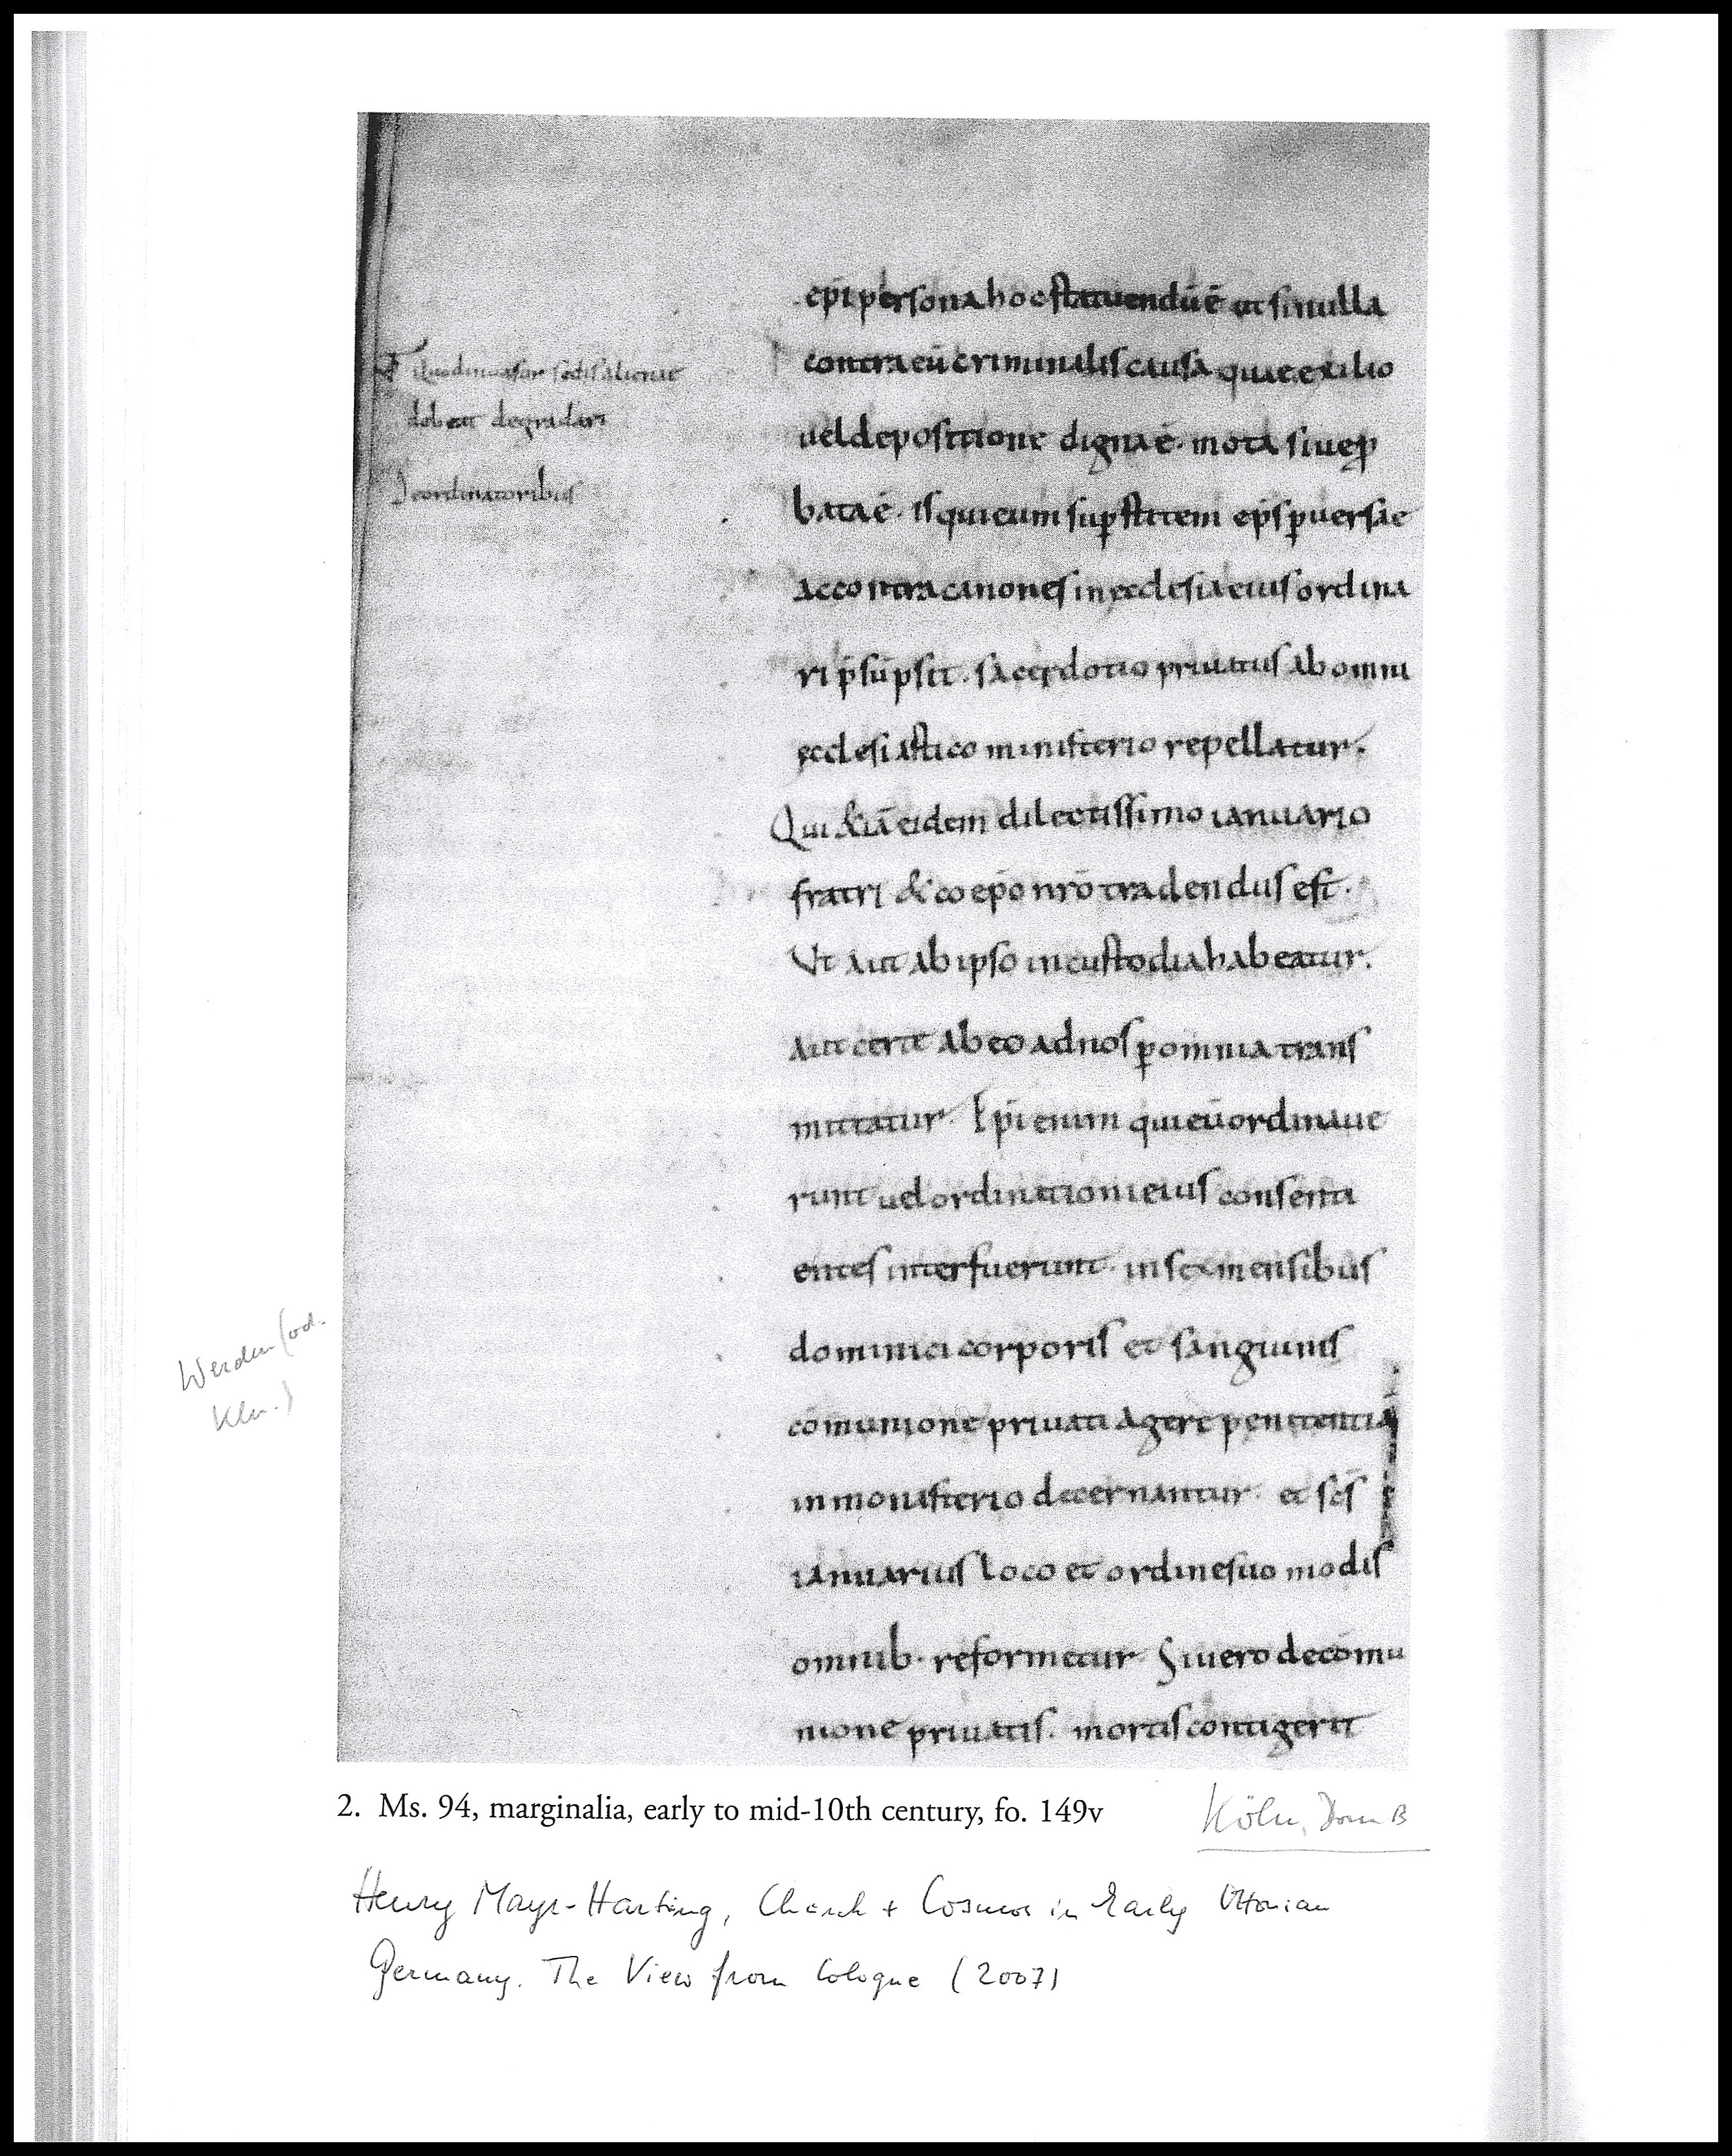 epi persona hoc statuendū ē ut si nulla
contra eū criminalis causa quae exilio
uel depositione digna ē. mota siue ꝓ
bata ē. is qui eum suꝑstitem ep̄s ꝑuersae
ac contra canones in ęcclesia eius ordina
ri p̄sūpsit. sacerdotio priuatus ab omni
ęcclesiastico ministerio repellatur.
Qui &iā eidem dilectissimo ianuario
fratri & coepō nr̄o tradendus est.
Vt aut ab ipso in custodia habeatur.
aut certe ab eo ad nos ꝑ omnia trans
mittatur. Epi enim qui eū ordinaue
runt uel ordinationi eius consenti
entes interfuerunt. in sex mensibus
dominici corporis et sanguinis
cōmunione priuati agere penitentiā
in monasterio decernantur. et scs̄
ianuarius loco et ordine suo modis
omnib. reformetur. Si uero de cōmu
nione priuatis. mortis contigerit
quod inuasor sedis alienae
debeat degradari
De ordinatoribus
Werden (od.
Kln.)
2. Ms. 94, marginalia, early to mid-10th century, fo. 149v
Köln, Dom B
Henry Mayr-Harting, Church + Cosmos in Early Ottonian
Germany. The View from Cologne (2007)